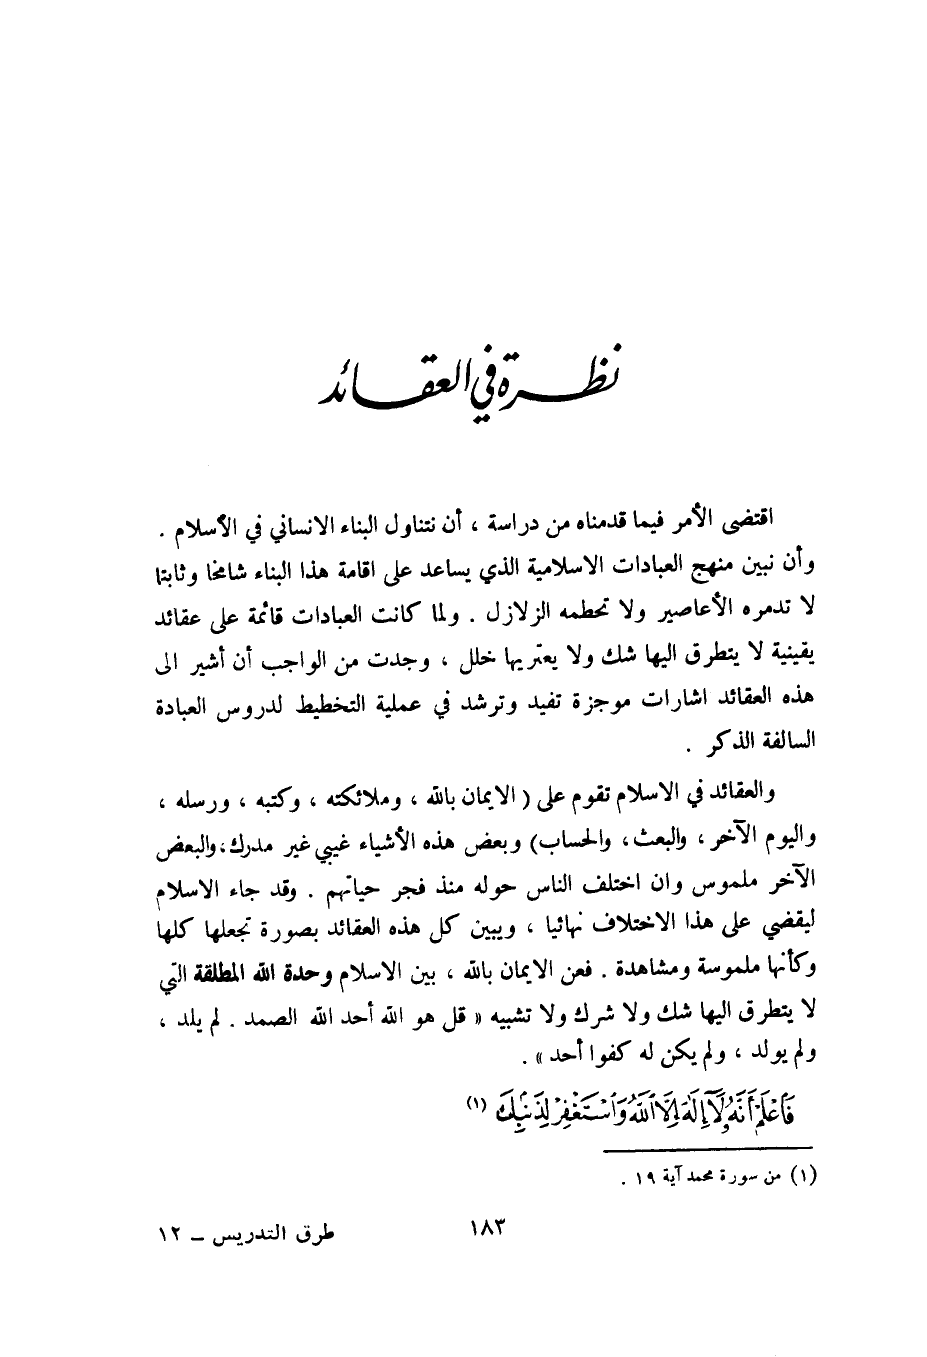 نظرة في العقائد
اقتضى الأمر فيما قدمناه من دراسة ، أن نتناول البناء الانساني في الأسلام .
وأن نبين منهج العبادات الاسلامية الذي يساعد على اقامة هذا البناء شامخا وثابتا
لا تدمره الأعاصير ولا تحطمه الزلازل . ولما كانت العبادات قائمة على عقائد
يقينية لا يتطرق اليها شك ولا يعتريها خلل ، وجدت من الواجب أن أشير الى
هذه العقائد اشارات موجزة تفيد وترشد في عملية التخطيط لدروس العبادة
السالفة الذكر .
والعقائد في الاسلام تقوم على ( الايمان بالله ، وملائكته ، وكتبه ، ورسله ،
واليوم الآخر ، والبعث ، والحساب) وبعض هذه الأشياء غيبي غير مدرك،والبعض
الآخر ملموس وان اختلف الناس حوله منذ فجر حياتهم . وقد جاء الاسلام
ليقضي على هذا الاختلاف نهائيا ، ويبين كل هذه العقائد بصورة تجعلها كلها
وكأنها ملموسة ومشاهدة . فعن الايمان بالله ، بين الاسلام وحدة الله المطلقة التي
لا يتطرق اليها شك ولا شرك ولا تشبيه « قل هو الله أحد الله الصمد . لم يلد ،
ولم يولد ، ولم يكن له كفوا أحد » .
فَاعْلَمْ أَنَّهُ لَآ إِلَهَ إِلَّا اللَّهُ وَاسْتَغْفِرْ لِذَنْبِكَ (١)
(١) من سورة محمد آية ١٩ .
١٨٣
طرق التدريس – ١٢